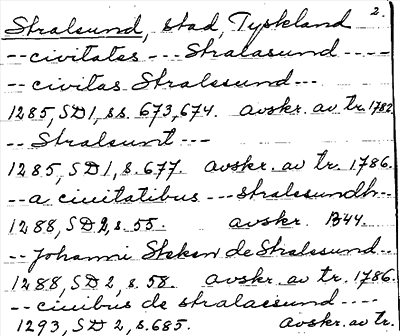 2.
Stralsund, stad, Tyskland
-- civitates --- Stralasund ----
-- civitas Stralessund ---
1285, SD1, s.s. 673, 674. avskr. av tr. 1782
-- Stralsunt ---
1285, SD1, s. 677. avskr. av tr. 1786.
-- a ciuitatibus --- stralessundh--
1288, SD 2, s. 55. avskr. B44.
-- Johanni Steken de Stralessund --
1288, SD 2, s. 58. avskr. av tr. 1786.
-- ciuibus de stralaessund ----
1293, SD 2, s. 685. avskr. av tr.